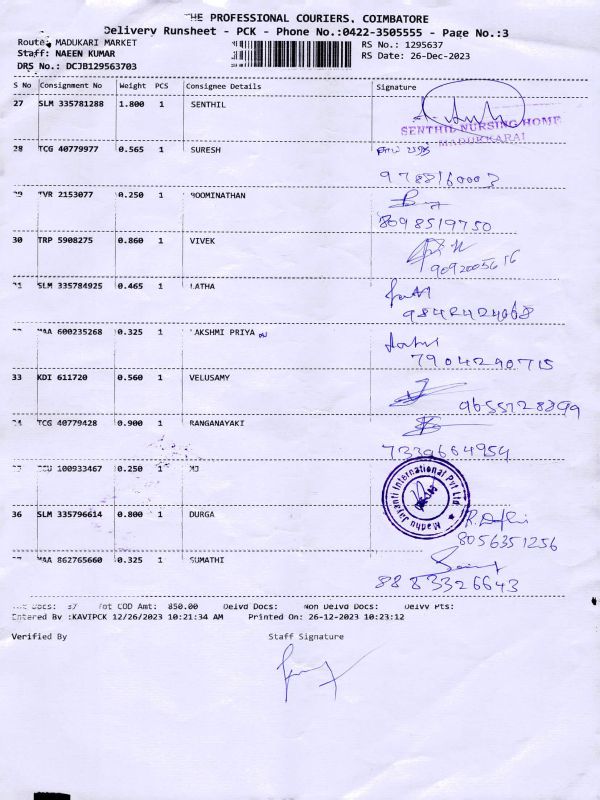 THE PROFESSIONAL COURIERS, COIMBATORE
Delivery Runsheet - PCK - Phone No.:0422-3505555 - Page No.:3
Route: MADUKARI MARKET
RS No.: 1295637
Staff: NAEEN KUMAR
RS Date: 26-Dec-2023
DRS No.: DCJB129563703
S No Consignment No Weight PCS Consignee Details Signature
27 SLM 335781288 1.800 1 SENTHIL
SENTHIL NURSING HOME
MADUKKARAI
28 TCG 40779977 0.565 1 SURESH
9788160003
29 TVR 2153077 0.250 1 BOOMINATHAN
8098519750
30 TRP 5908275 0.860 1 VIVEK
9092005616
31 SLM 335784925 0.465 1 LATHA
9842424068
MAA 600235268 0.325 1 LAKSHMI PRIYA
7904290715
33 KDI 611720 0.560 1 VELUSAMY
9655128899
34 TCG 40779428 0.900 1 RANGANAYAKI
7339664954
100933467 0.250 1 MJ
Madhu Jayanti International Pvt Ltd
36 SLM 335796614 0.800 1 DURGA
8056351256
MAA 862765660 0.325 1 SUMATHI
8883326643
Docs: 37 Tot COD Amt: 850.00 Delvd Docs: Non Delvd Docs: Delvv Pts:
Entered By :KAVIPCK 12/26/2023 10:21:34 AM Printed On: 26-12-2023 10:23:12
Verified By Staff Signature